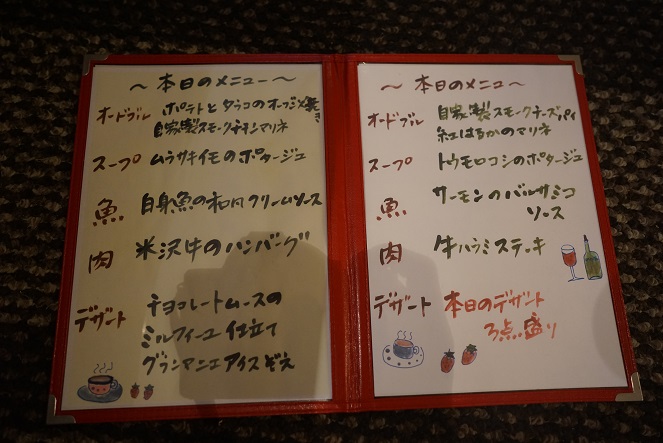 ～本日のメニュー～
オードブル ポテトとタラコのオーブン焼き
自家製スモークチキンマリネ
スープ ムラサキイモのポタージュ
魚 白身魚の和風クリームソース
肉 米沢牛のハンバーグ
デザート チョコレートムースの
ミルフィーユ仕立て
グランマニエアイスぞえ
～本日のメニュー～
オードブル 自家製スモークチーズパイ
紅はるかのマリネ
スープ トウモロコシのポタージュ
魚 サーモンのバルサミコ
ソース
肉 牛ハラミステーキ
デザート 本日のデザート
3点盛り